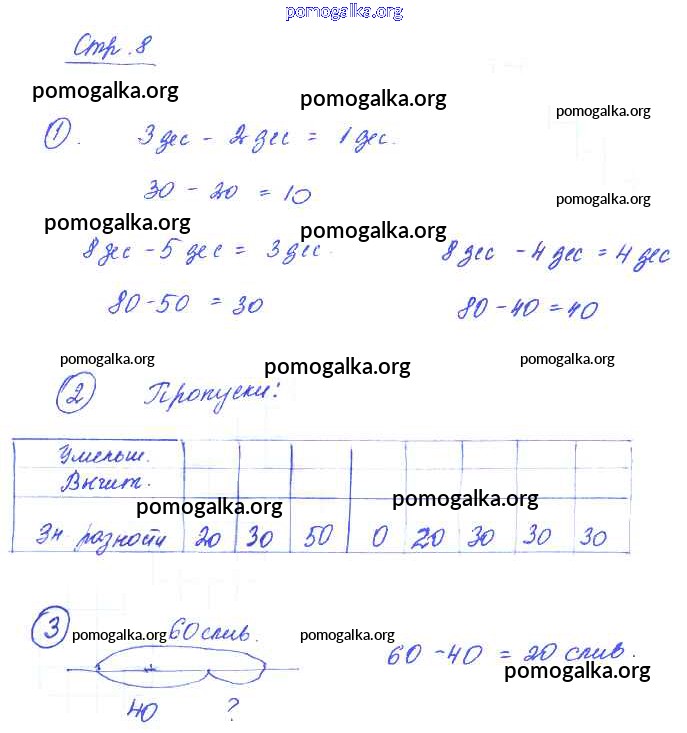 pomogalka.org
Стр. 8
pomogalka.org pomogalka.org pomogalka.org
1. 3 дес - 2 дес = 1 дес.
30 - 20 = 10 pomogalka.org
pomogalka.org pomogalka.org
8 дес - 5 дес = 3 дес. 8 дес - 4 дес = 4 дес
80 - 50 = 30 80 - 40 = 40
pomogalka.org pomogalka.org pomogalka.org
2 Пропуски:
Уменьш.
Вычит.
pomogalka.org pomogalka.org
Зн разности 20 30 50 0 20 30 30 30
3 pomogalka.org 60 слив. pomogalka.org
60 - 40 = 20 слив.
pomogalka.org
40 ?